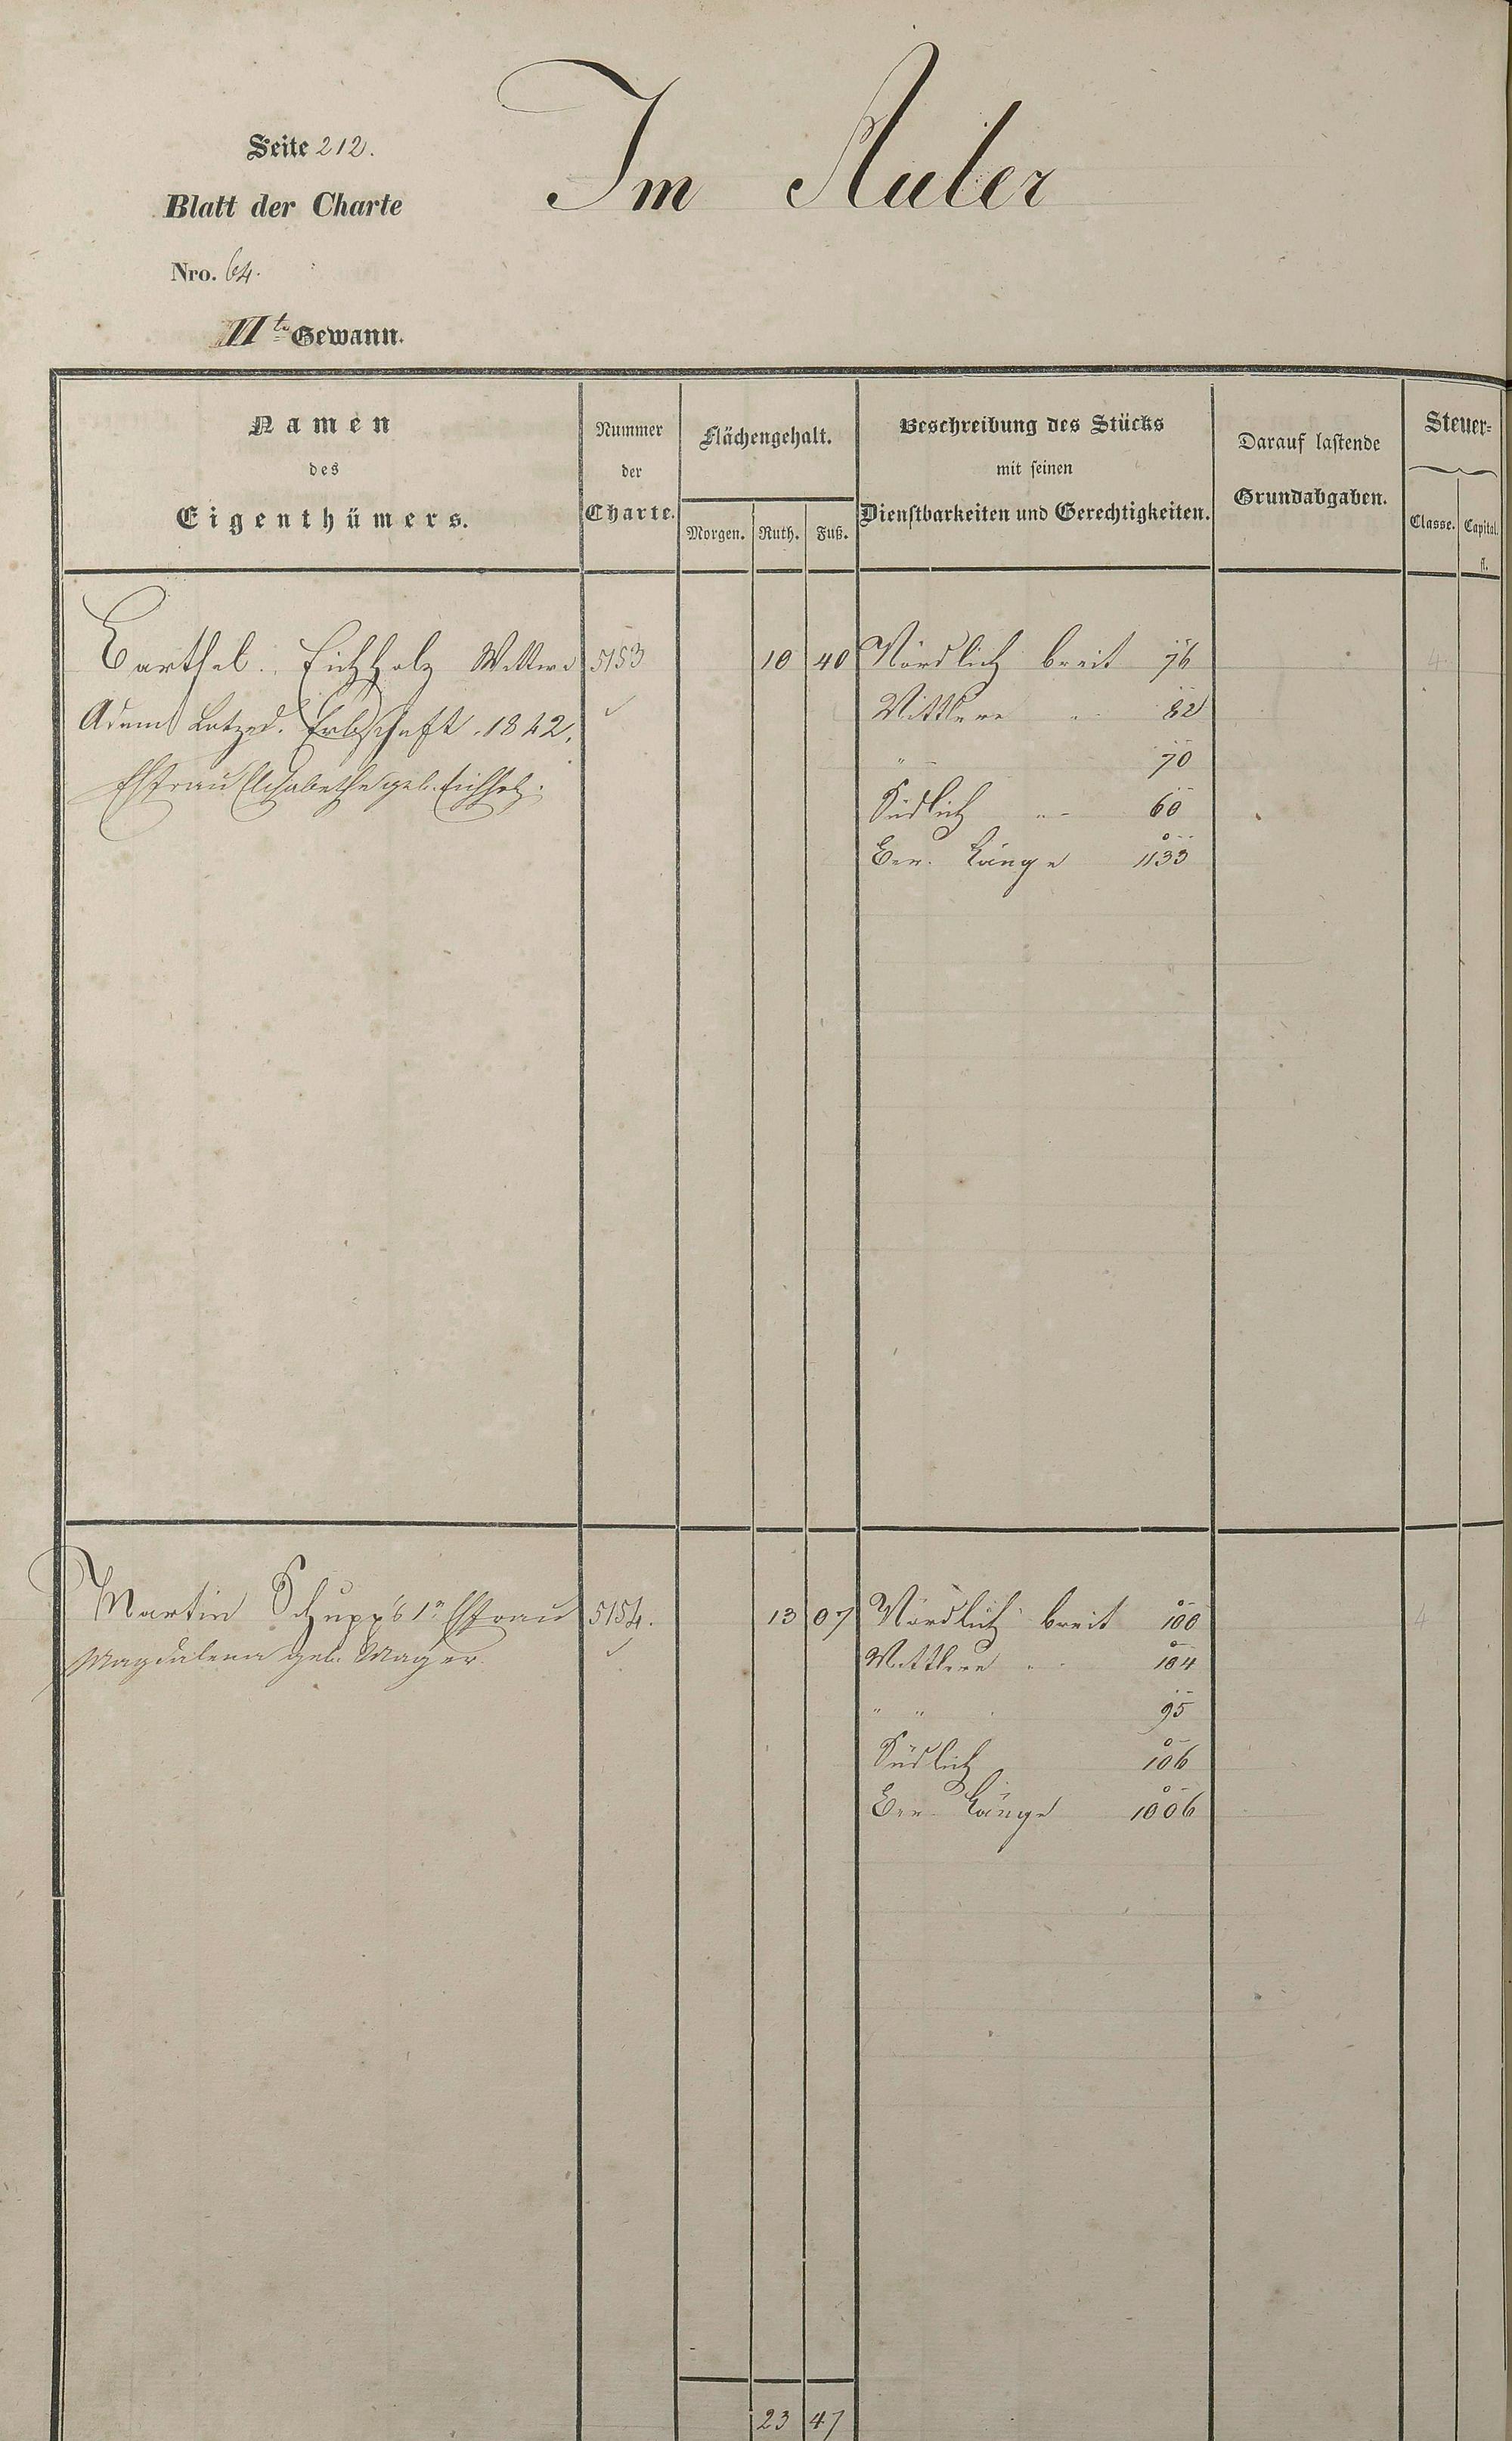 Seite 212.
Im Auler
Blatt der Charte
Nro. 64.
IIte Gewann.
Namen
des
Eigenthümers.
Nummer
der
Charte.
Flächengehalt.
Morgen. Ruth. Fuß.
Beschreibung des Stücks
mit seinen
Dienstbarkeiten und Gerechtigkeiten.
Darauf lastende
Grundabgaben.
Steuer-
Classe. Capital.
fl.
Barthel. Eichholz Wittwe 5153 10 40 Nördlich breit 76 4
Adam Erbschaft. 1842. Mittlere " 82
" 70
Ehfrau Elisabetha geb. Eichholz.
Südlich " 60
Ver. Länge 1133
Martin Schupp's 1r Ehfrau 5154. 13 07 Nördlich breit 100 4
Magdalena geb. Mager. Mittlere " 104
" " 95
Südlich 106
Ver. Länge 1006
23 47